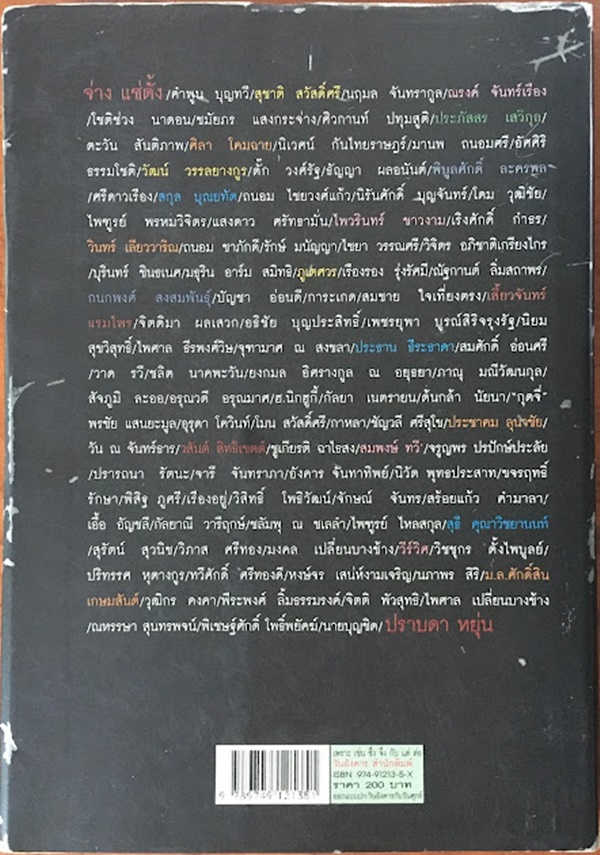 จ่าง แซ่ตั้ง/คำพูน บุญทวี/สุชาติ สวัสดิ์ศรี/นฤมล จันทรากูล/ณรงค์ จันทร์เรือง
/โชติช่วง นาดอน/ชมัยภร แสงกระจ่าง/ศิวกานท์ ปทุมสูติ/ประภัสสร เสวิกุล/
ตะวัน สันติภาพ/ศิลา โคมฉาย/นิเวศน์ กันไทยราษฎร์/มานพ ถนอมศรี/อัศศิริ
ธรรมโชติ/วัฒน์ วรรลยางกูร/ตั๊ก วงศ์รัฐ/ธัญญา ผลอนันต์/พิบูลศักดิ์ ละครพล
/ศรีดาวเรือง/สกุล บุณยทัต/ถนอม ไชยวงศ์แก้ว/นิรันศักดิ์ บุญจันทร์/โดม วุฒิชัย/
ไพฑูรย์ พรหมวิจิตร/แสงดาว ศรัทธามั่น/ไพวรินทร์ ขาวงาม/เริงศักดิ์ กำธร/
วินทร์ เลียววาริณ/ถนอม ชาภักดี/รักษ์ มนัญญา/ไชยา วรรณศรี/วิจิตร อภิชาติเกรียงไกร
/บุรินทร์ ชินธเนศ/มธุริน อาร์ม สมิทธิ/ภูเตศวร/เรืองรอง รุ่งรัศมี/ณัฐกานต์ ลิ่มสถาพร/
กนกพงศ์ สงสมพันธุ์/บัญชา อ่อนดี/การะเกต/สมชาย ใจเที่ยงตรง/เสี้ยวจันทร์
แรมไพร/จิตติมา ผลเสวก/อธิชัย บุญประสิทธิ์/เพชรยุพา บูรณ์สิริจรุงรัฐ/นิยม
สุขวิสุทธิ์/ไพศาล ธีรพงศ์วิษ/จุฑามาศ ณ สงขลา/ประธาน ธีระธาดา/สมศักดิ์ อ่อนศรี
/วาด รวี/ชลิต นาคพะวัน/ยงกมล อิศรางกูล ณ อยุธยา/ภาณุ มณีวัฒนกุล/
สัจภูมิ ละออ/อรุณวดี อรุณมาศ/ฮ.นิกฮูกี้/กัลยา เนตรายน/ต้นกล้า นัยนา/"กุดจี่"
พรชัย แสนยะมูล/อุรุดา โควินท์/โมน สวัสดิ์ศรี/กาหลา/ชัญวลี ศรีสุโข/ประชาคม ลุนาชัย/
วัน ณ จันทร์ธาร/วสันต์ สิทธิเขตต์/ชูเกียรติ ฉาไธสง/สมพงษ์ ทวี'/จรูญพร ปรปักษ์ประลัย
/ปรารถนา รัตนะ/จารี จันทราภา/อังคาร จันทาทิพย์/นิวัต พุทธประสาท/ขจรฤทธิ์
รักษา/พิสิฐ ภูศรี/เรืองอยู่/วิสิทธิ์ โพธิวัฒน์/จักษณ์ จันทร/สร้อยแก้ว คำมาลา/
เอื้อ อัญชลี/กัลยาณี วารีฤกษ์/ชลัมพุ ณ ชเลลำ/ไพฑูรย์ ไหลสกุล/สุธี คุณาวิชยานนท์
/สุรัตน์ สุวนิช/วิภาส ศรีทอง/มงคล เปลี่ยนบางช้าง/วีร์วิศ/วิชชุกร ตั้งไพบูลย์/
ปริทรรศ หุตางกูร/ทวีศักดิ์ ศรีทองดี/หงษ์จร เสน่ห์งามเจริญ/นภาพร สิริ/ม.ล.ศักดิ์สิน
เกษมสันต์/วุฒิกร คงคา/พีระพงศ์ ลิ้มธรรมรงค์/จิตติ พัวสุทธิ/ไพศาล เปลี่ยนบางช้าง
/ณหรรษา สุนทรพจน์/พิเชษฐ์ศักดิ์ โพธิ์พยัคฆ์/นายบุญชิต/ปราบดา หยุ่น
เพราะ เช่น ซึ่ง จึง กับ แต่ ต่อ
วันอังคาร สำนักพิมพ์
ISBN 974-91213-5-X
ราคา 200 บาท
ออกแบบปก วันอังคารกับวันศุกร์
9 789749 121351